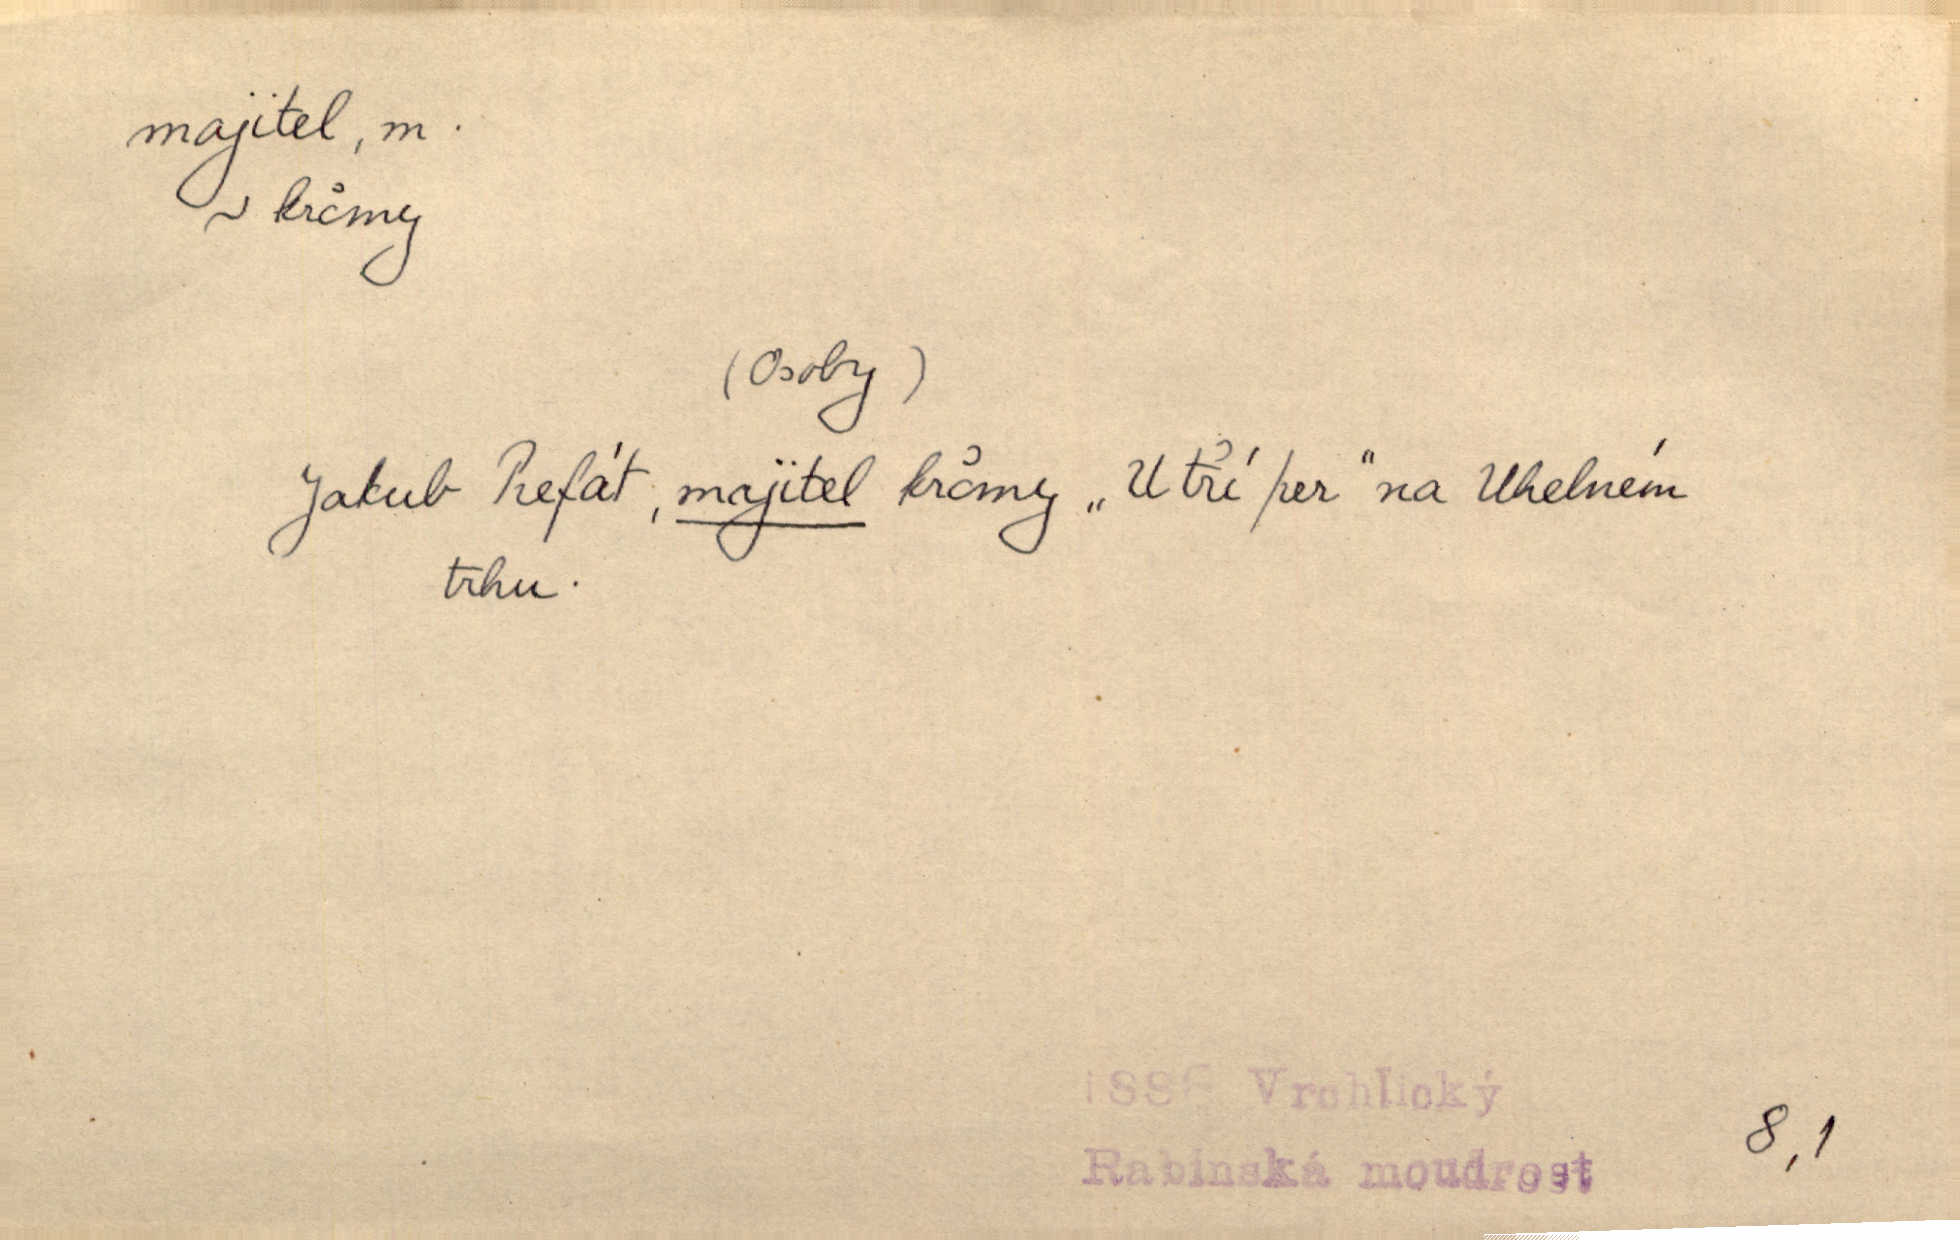 majitel, m.
~ krčmy
(Osoby)
Jakub Řefát, majitel krčmy „U tří per" na Uhelném
trhu.
1886 Vrchlický
Rabínská moudrost
8,1